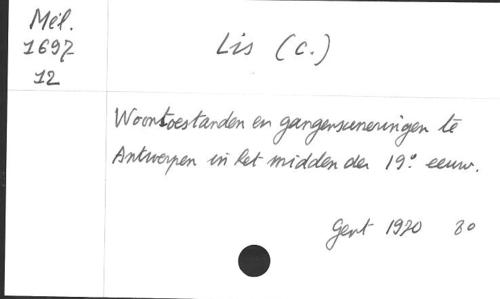 Mél.
1697
12
Lis (C.)
Woontoestanden en gangensaneringen te
Antwerpen in het midden der 19e eeuw.
Gent 1970 80